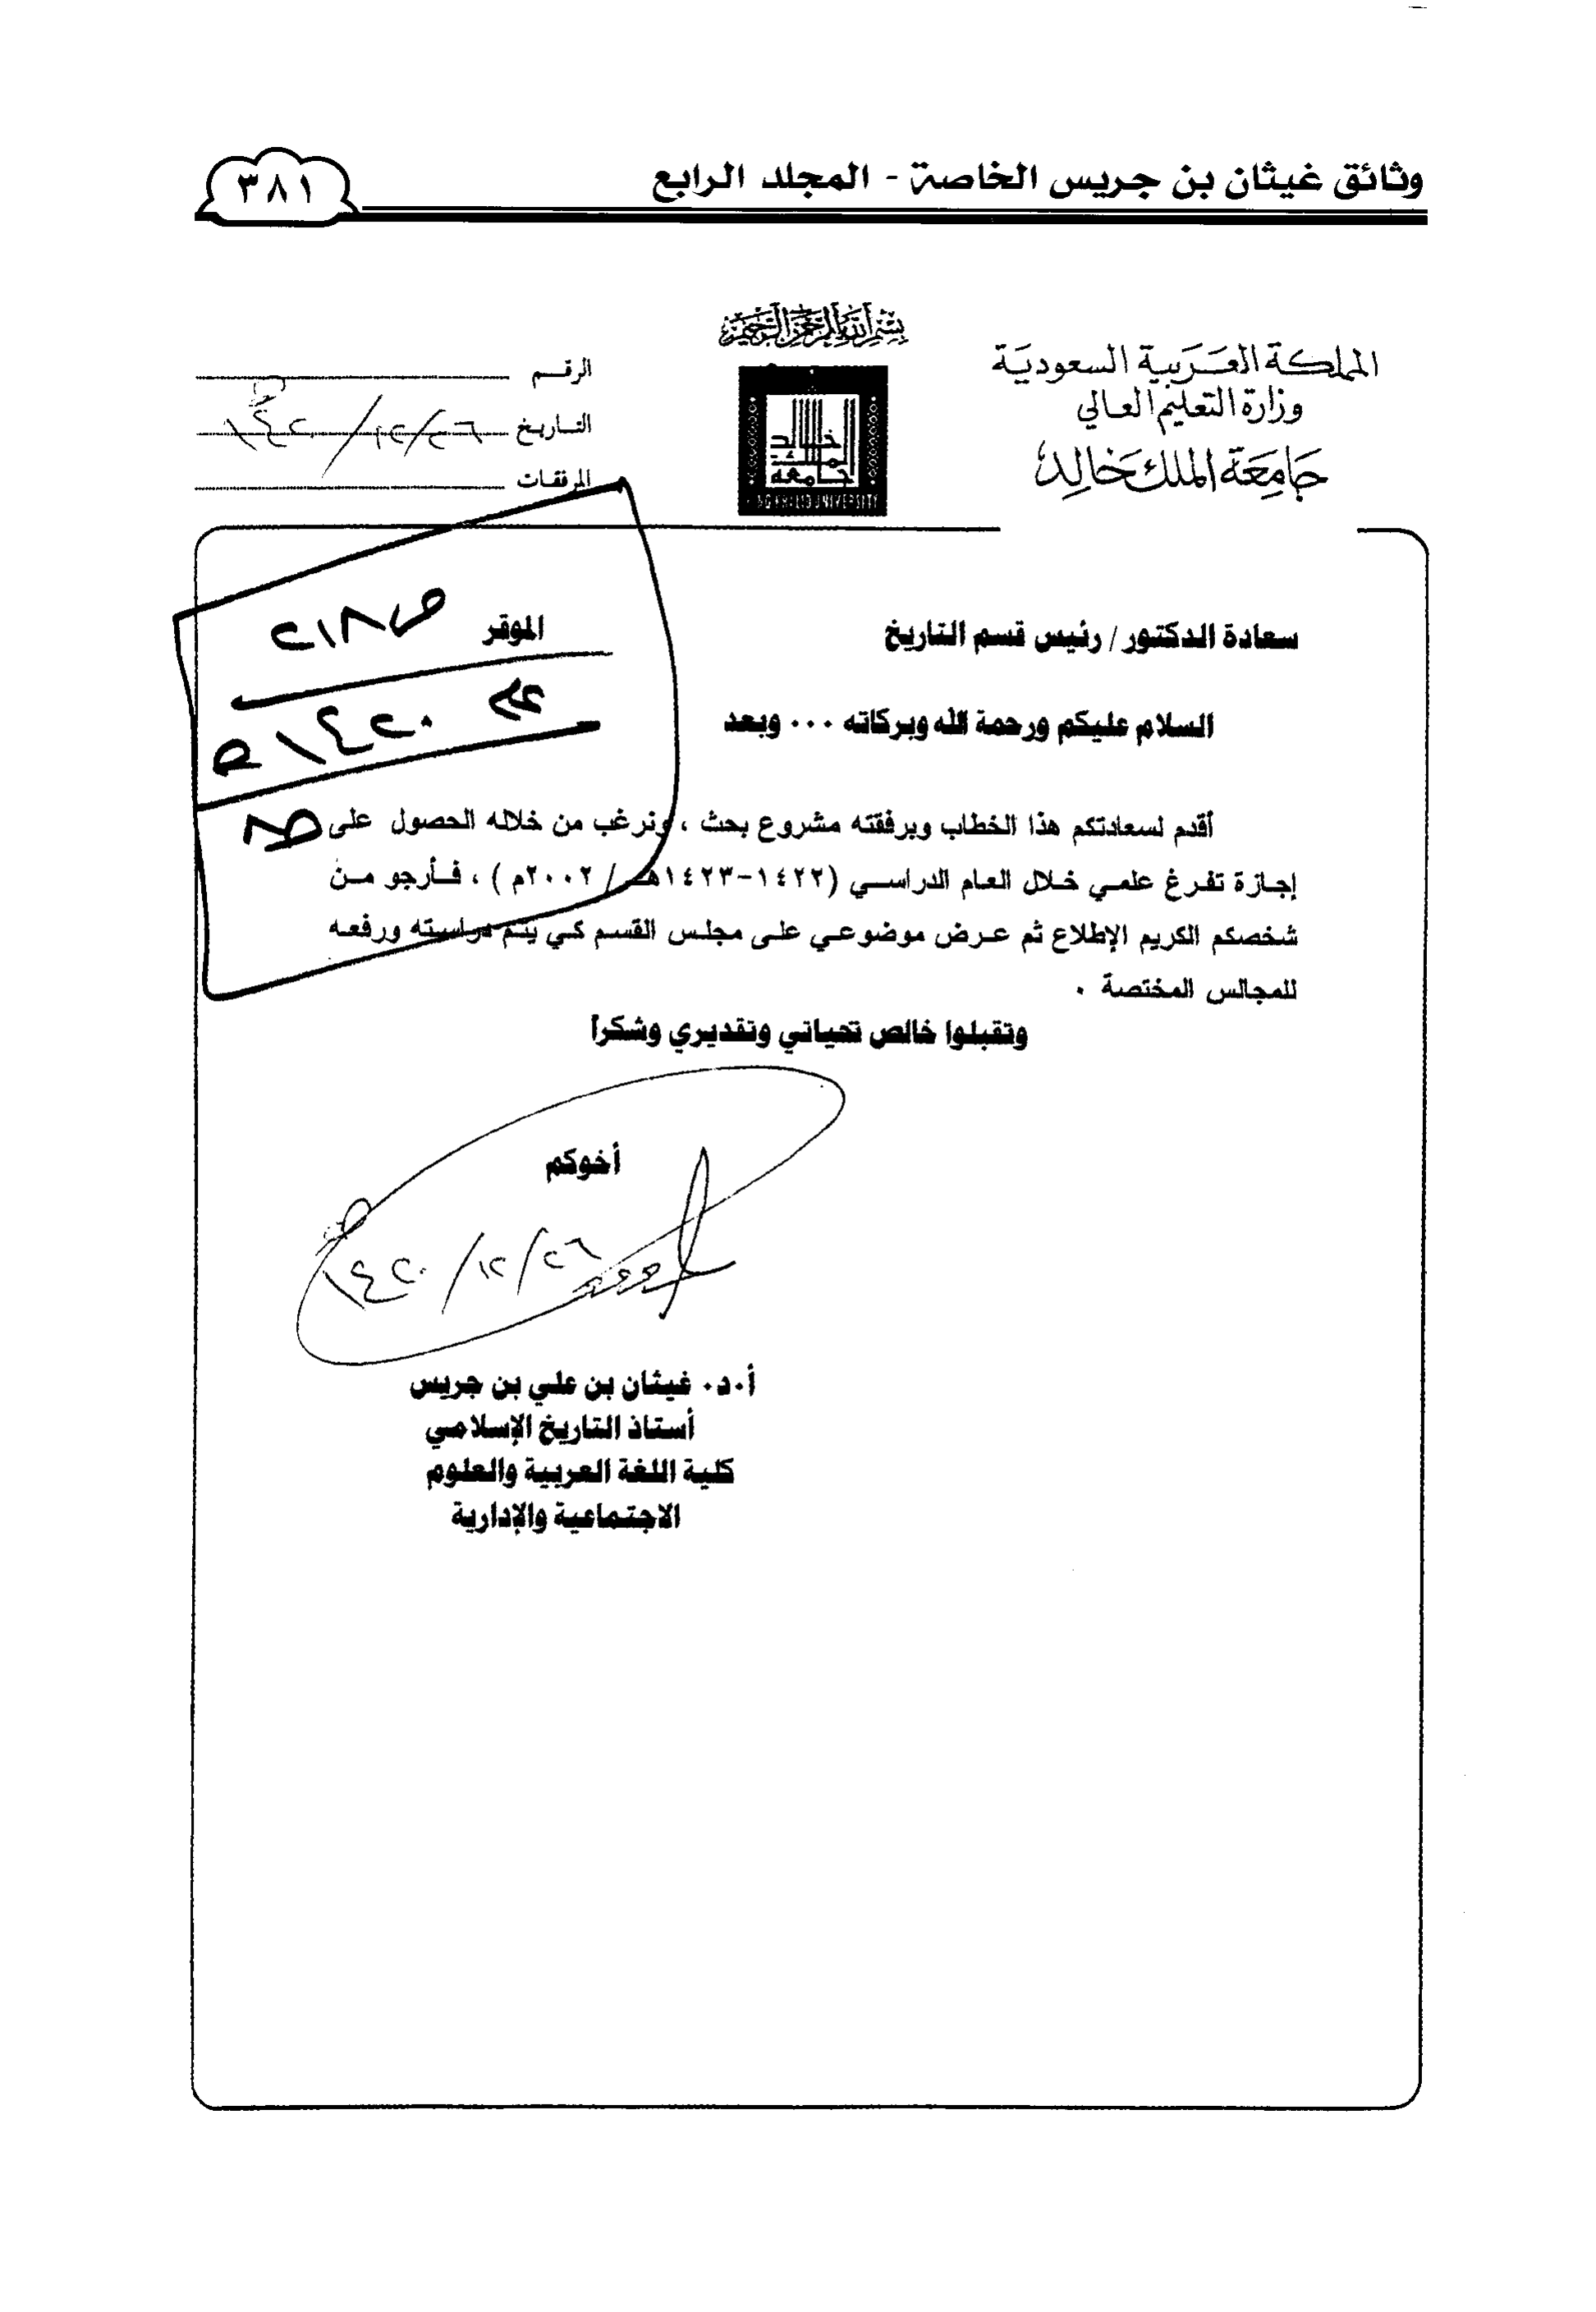 وثائق غيثان بن جريس الخاصة - المجلد الرابع
٣٨١
بسم الله الرحمن الرحيم
المملكة العربية السعودية
وزارة التعليم العالي
جامعة الملك خالد
جامعة الملك خالد
KING KHALED UNIVERSITY
الرقم
التاريخ ٢٦/١٢/١٤٢٠هـ
المرفقات
سعادة الدكتور/ رئيس قسم التاريخ الموقر
١٤٢٠هـ
السلام عليكم ورحمة الله وبركاته ... وبعد
أقدم لسعادتكم هذا الخطاب وبرفقته مشروع بحث ، ونرغب من خلاله الحصول على
إجازة تفرغ علمي خلال العام الدراسي (١٤٢٢-١٤٢٣هـ / ٢٠٠٢م ) ، فأرجو من
شخصكم الكريم الإطلاع ثم عرض موضوعي على مجلس القسم كي يتم دراسته ورفعه
للمجالس المختصة .
وتقبلوا خالص تحياتي وتقديري وشكراً
أخوكم
٢٦/١٢/١٤٢٠هـ
أ.د. غيثان بن علي بن جريس
أستاذ التاريخ الإسلامي
كلية اللغة العربية والعلوم
الاجتماعية والإدارية